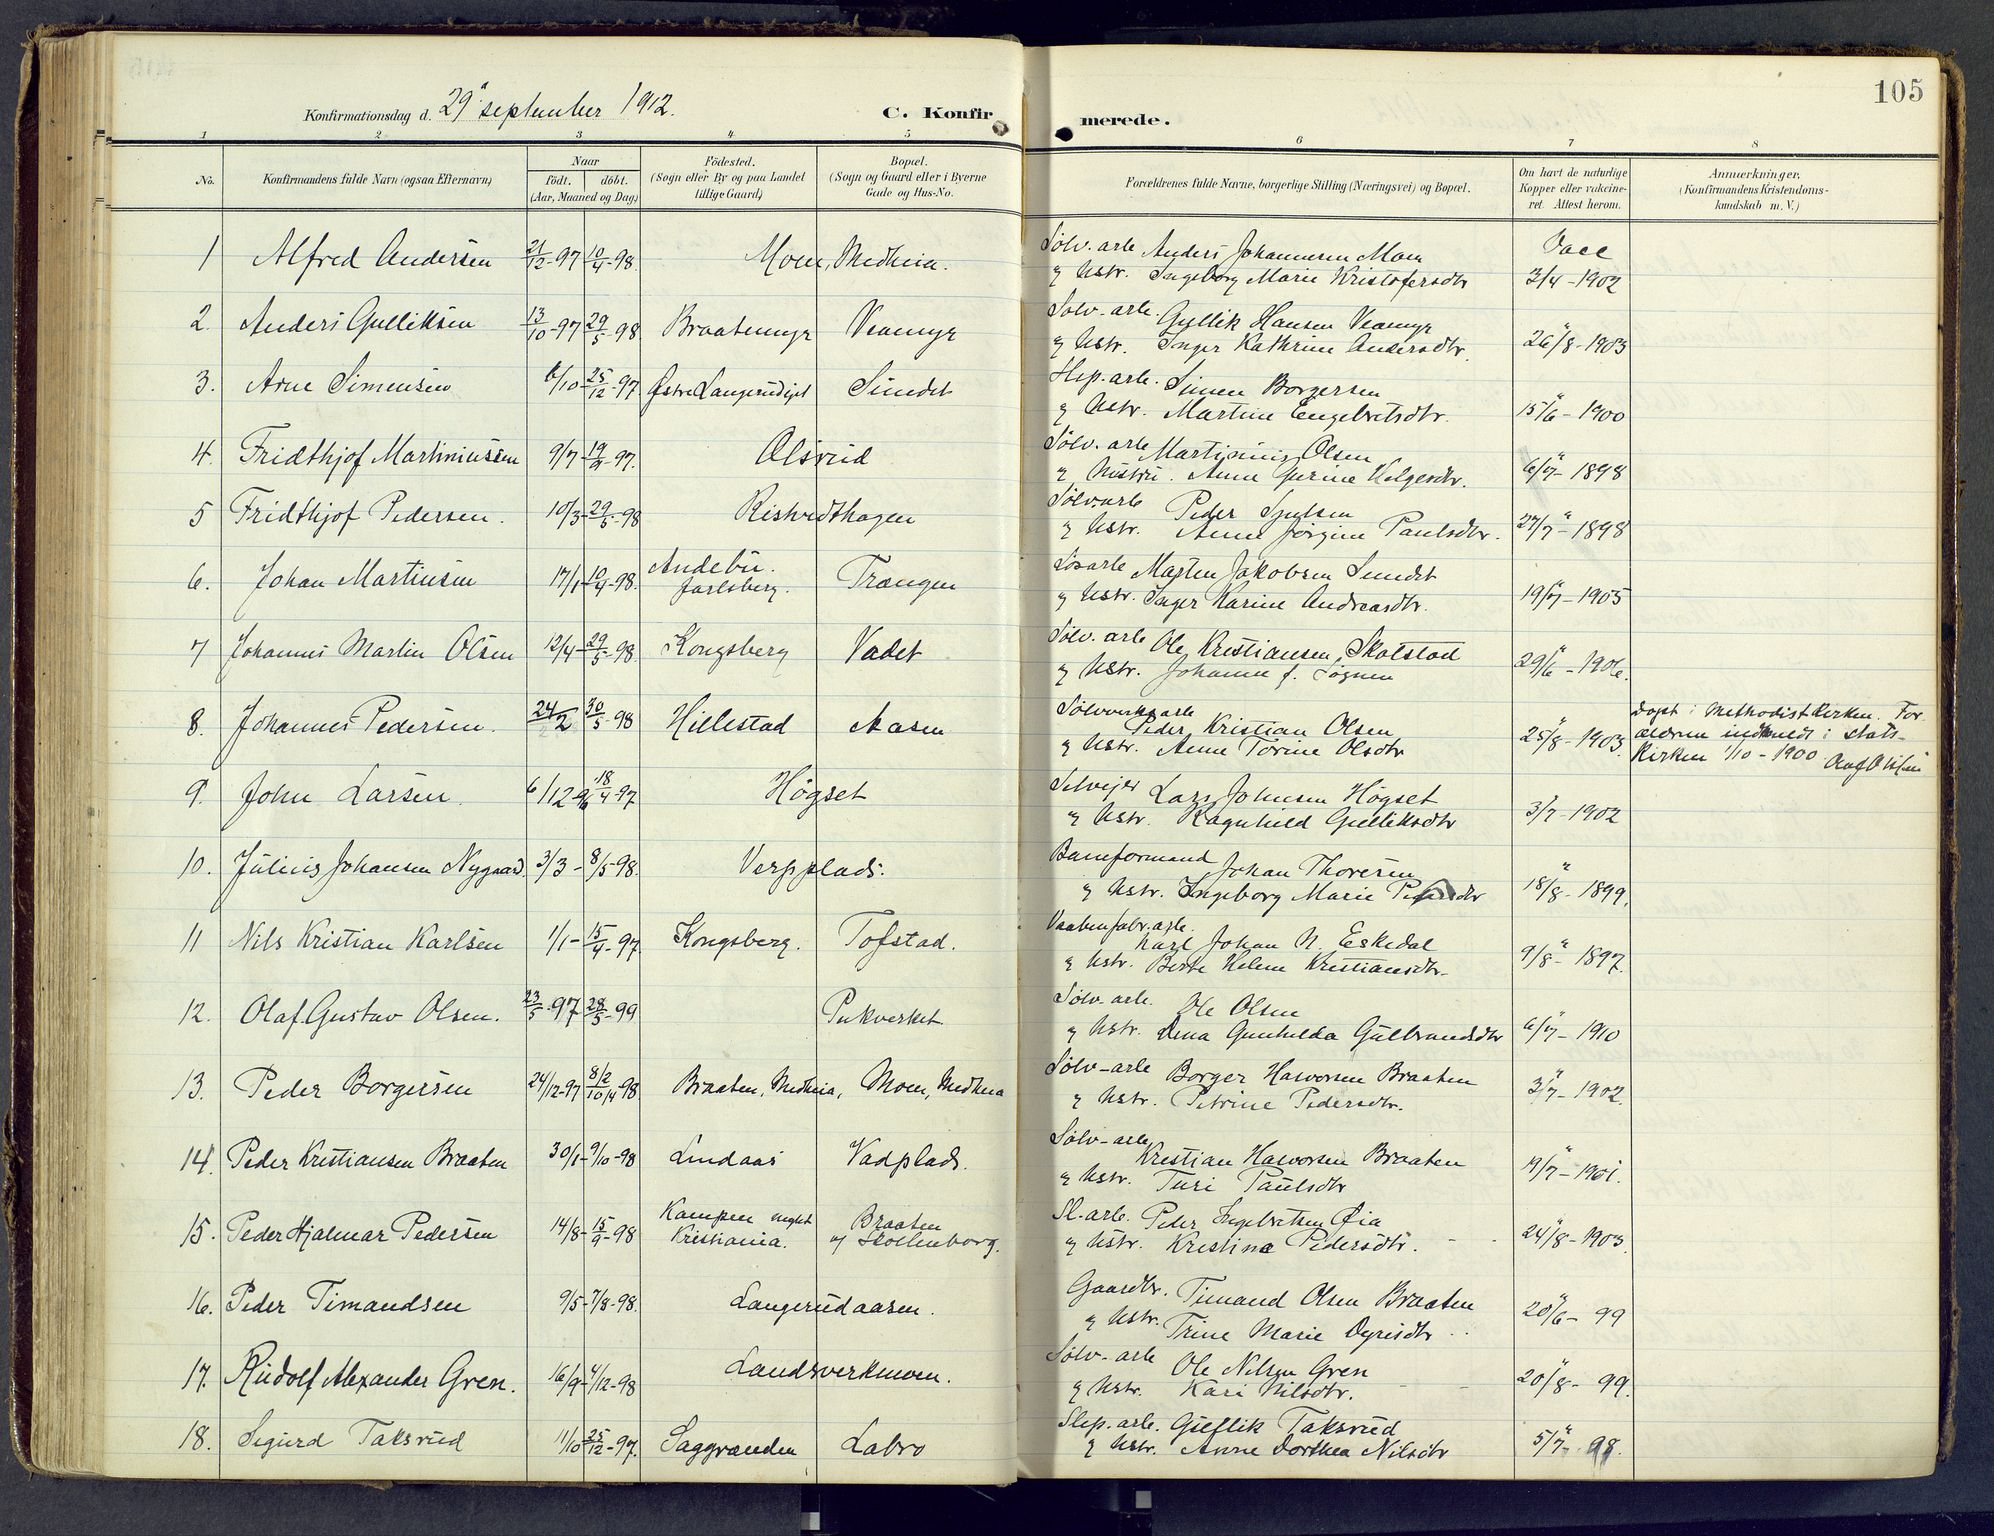 105
Konfirmationsdag d. 29 september 1912.
C. Konfirmerede.
1 2 3 4 5 6 7 8
No. Konfirmandens fulde Navn (ogsaa Efternavn)
Naar
födt. döbt.
(Aar, Maaned og Dag)
Födested.
(Sogn eller By og paa Landet
tillige Gaard)
Bopæl.
(Sogn og Gaard eller i Byerne
Gade og Hus-No.
Forældrenes fulde Navne, borgerlige Stilling (Næringsvei) og Bopæl.
Om havt de naturlige
Kopper eller vakcine-
ret. Attest herom.
Anmærkninger.
(Konfirmandens Kristendoms-
kundskab m. V.)
1 Alfred Andersen 21/12-97 10/4-98. Moen, Medheia. Sölv. arb. Anders Johannesen Moen Vacc
og Hstr. Ingeborg Marie Kristofersdtr 3/4-1902
2. Anders Gulliksen 13/10-97 29/5-98 Braatemyr Veamyr Sölv. arb. Gullik Hansen Veamyr
og Hstr. Inger Kathrine Andersdtr. 26/8-1903
3. Arne Simensen 6/10 25/12-97 Østre Langerudeiet Sundet Slip. arb. Simen Borgersen
og Hstr. Martine Engebretsdtr. 15/6-1900
4. Fridthjof Martiniussen 9/7 19/9-97. Olsrud Sölv. arb. Martinius Olsen
og Hustru. Anne Gurine Helgesdtr. 6/7-1898
5 Fridthjof Pedersen. 10/3 29/5-98 Ristvedthagen Sölv. arb Peder
og Hstr. Anne Jørgine Paulsdtr. 27/7-1898
6. Johan Martinsen 17/1 10/4-98. Andebu. Jarlsberg. Trangen Løsarb Martin Jakobsen Sundet
og Hstr. Inger Karine Andreasdtr. 19/7-1905
7 Johannes Martin Olsen 12/4 29/5-98. Kongsberg Vadet Sölv. arb Ole Kristiansen Skolstad
og Hstr. Johanne f. 29/6-1906.
8. Johannes Pedersen. 24/2 30/5-98 Hillestad Aasen Sølvverksarb Peder Kristian Olsen
og Hstr. Anne Torine Olsdtr 25/8-1903
Døpt i Methodistkirken. For-
ældrene indmeldt i Stats-
kirken 1/10-1900
9. John Larsen. 6/12 96 18/4-97 Högset Selveier Lars Johnsen Högset
og Hstr. Ragnhild Gulliksdtr 3/7-1902
10. Julius Johansen Nygaard. 3/3- 8/5-98. Verpplads. Baneformand Johan Thoresen
og Hstr. Ingeborg Marie 18/8-1899.
11 Nils Kristian Karlsen 1/1- 15/4-97. Kongsberg. Tofstad. Vaabenfabr. arb. Karl Johan N. Eskedal
og Hstr. Berte Helene Kristiansdtr. 9/8-1897.
12. Olaf Gustav Olsen. 23/5-97 28/5-99 Pukverket. Sölv-arb. Ole Olsen
og Hstr. Lina Gunhilda Gulbrandsdtr 6/7-1910
13. Peder Borgersen 24/12-97 8/2 10/4-98 Braaten, Medheia, Moen, Medheia Sölv-arb Borger Halvorsen Braaten
og Hstr. Petrine Pedersdtr. 3/7-1902.
14. Peder Kristiansen Braaten 30/1- 9/10-98 Lindaas Vadplads. Sölv-arb Kristian Halvorsen Braaten
og Hstr. Turi Paulsdtr 19/7-1901.
15. Peder Hjalmar Pedersen 14/8- 15/9-98 Kampen Kristiania. Braaten og Skollenborg. Sl. arb. Peder Ingebretsen Øia
og Hstr. Kristina Pedersdtr. 24/8-1903.
16. Peder Timandsen 9/5- 7/8-98. Langerudaasen. Gaardbr. Timand Olsen Braaten
og Hstr. Trine Marie 20/6-99
17. Rudolf Alexander Gren. 16/9- 4/12-98 Landsverkmoen. Sölv-arb Ole Nilsen Gren
og Hstr. Kari Nilsdtr. 20/8-99.
18. Sigurd Taksrud 11/10 25/12-97. Saggranden Labro Slip. arb. Gullik Taksrud
og Hstr. Anne Dorthea Nilsdtr 5/7-98.